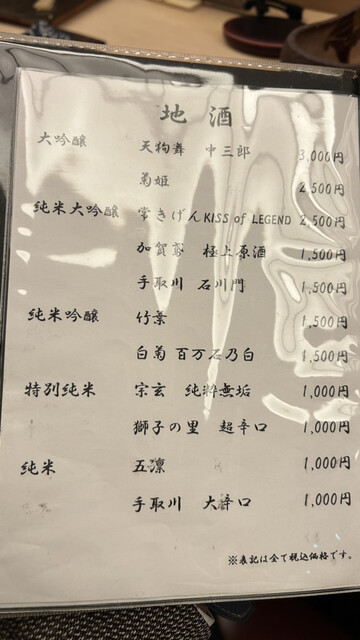 地酒
大吟醸 天狗舞 中三郎 3,000円
菊姫 2,500円
純米大吟醸 常きげんKISS of LEGEND 2,500円
加賀鳶 極上原酒 1,500円
手取川 石川門 1,500円
純米吟醸 竹葉 1,500円
白菊 百万石乃白 1,500円
特別純米 宗玄 純粋無垢 1,000円
獅子の里 超辛口 1,000円
純米 五凛 1,000円
手取川 大辛口 1,000円
※表記は全て税込価格です。